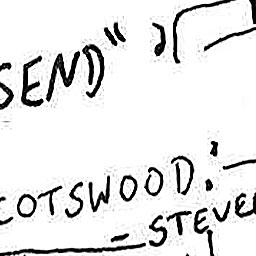 SEND"
COTSWOOD:
- STEVE